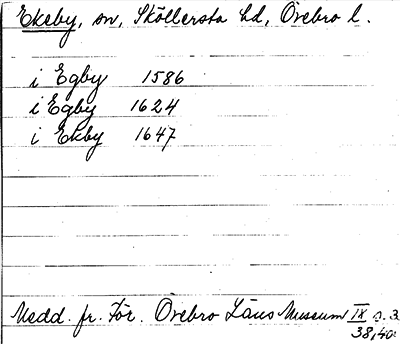 Ekeby, sn, Sköllersta hd, Örebro l.
i Egby 1586
i Egby 1624
i Ekby 1647
Medd. fr. För. Örebro Läns Museum IX s. 3
38,40